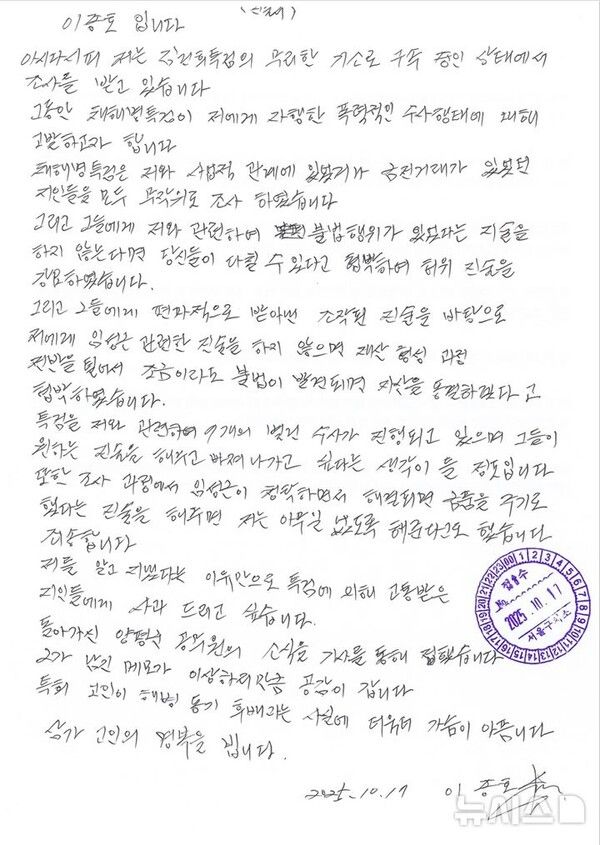 이종호 입니다
아시다시피 저는 김건희특검의 무리한 기소로 구속 중인 상태에서
조사를 받고 있습니다
그동안 채해병특검이 저에게 자행한 폭력적인 수사행태에 대해
고발하고자 합니다
채해병특검은 저와 사업적 관계에 있었거나 금전거래가 있었던
지인들을 모두 무작위로 조사 하였습니다
그리고 그들에게 저와 관련하여 불법행위가 있었다는 진술을
하지 않는다면 당신들이 다칠 수 있다고 협박하여 허위 진술을
강요하였습니다.
그리고 그들에게 편파적으로 받아낸 조작된 진술을 바탕으로
저에게 임성근 관련한 진술을 하지 않으면 재산 형성 과정
전반을 털어서 조금이라도 불법이 발견되면 자산을 동결하겠다 고
협박하였습니다.
특검을 저와 관련하여 9개의 별건 수사가 진행되고 있으며 그들이
원하는 진술을 해주고 빠져나가고 싶다는 생각이 들 정도입니다
또한 조사 과정에서 임성근이 청탁하면서 해결되면 금품을 주기로
했다는 진술을 해주면 저는 아무일 없도록 해준다고도 했습니다
죄송합니다
저를 알고 지냈다는 이유만으로 특검에 의해 고통받은
지인들에게 사과 드리고 싶습니다.
돌아가신 양평군 공무원의 소식을 기사를 통해 접했습니다
그가 남긴 메모가 이상하리만큼 공감이 갑니다
특히 고인이 해병 동기 후배라는 사실에 더욱더 가슴이 아픕니다
삼가 고인의 명복을 빕니다.
2025.10.17 이 종호
접수
2025. 10. 17
서울구치소
00 1 2 3 4 5 6 7 8 9 10 11 12 13 14 15 16 17 18 19 20 21 22 23
뉴시스